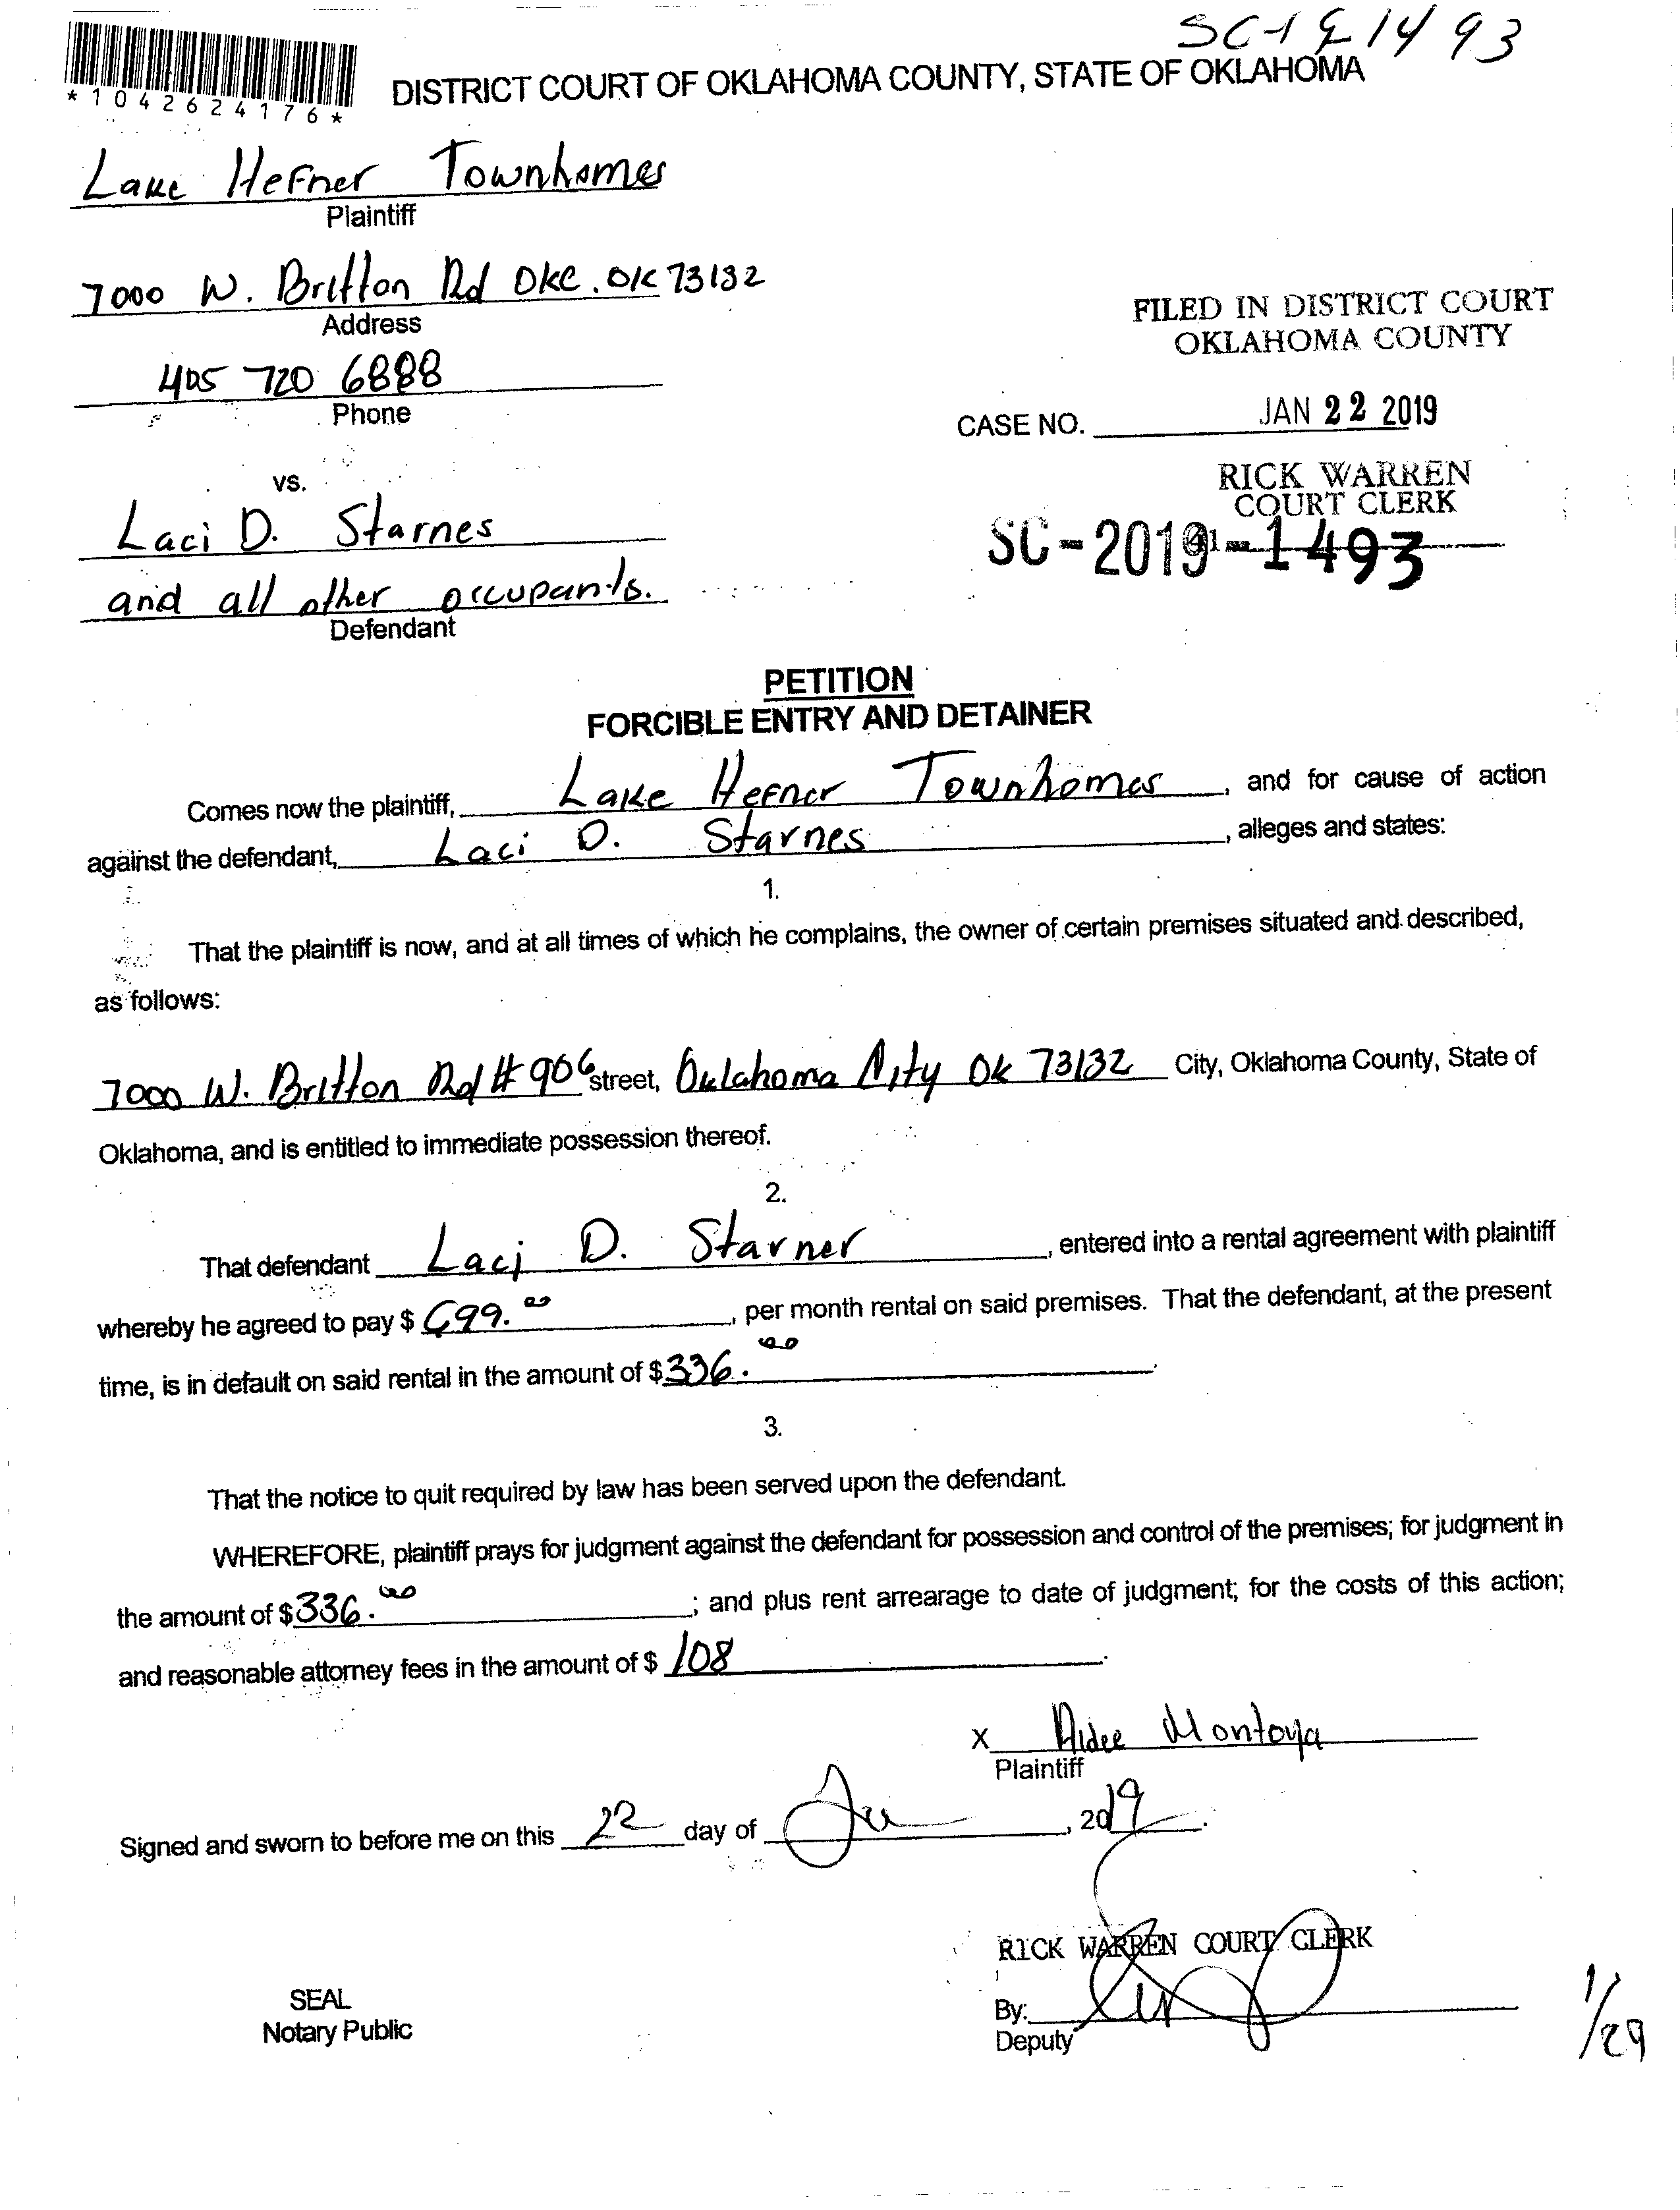 SC-19 1493
*1042624176*
DISTRICT COURT OF OKLAHOMA COUNTY, STATE OF OKLAHOMA
Lake Hefner Townhomes
Plaintiff
7000 W. Britton Rd OKC. OK 73132
Address
405 720 6888
Phone
FILED IN DISTRICT COURT
OKLAHOMA COUNTY
JAN 22 2019
CASE NO.
RICK WARREN
COURT CLERK
SC-2019-1493
vs.
Laci D. Starnes
and all other occupants.
Defendant
PETITION
FORCIBLE ENTRY AND DETAINER
Comes now the plaintiff, Lake Hefner Townhomes, and for cause of action
against the defendant, Laci D. Starnes, alleges and states:
1.
That the plaintiff is now, and at all times of which he complains, the owner of certain premises situated and described,
as follows:
7000 W. Britton Rd # 906 street, Oklahoma City OK 73132 City, Oklahoma County, State of
Oklahoma, and is entitled to immediate possession thereof.
2.
That defendant Laci D. Starner, entered into a rental agreement with plaintiff
whereby he agreed to pay $ 699.00, per month rental on said premises. That the defendant, at the present
time, is in default on said rental in the amount of $ 336.00.
3.
That the notice to quit required by law has been served upon the defendant.
WHEREFORE, plaintiff prays for judgment against the defendant for possession and control of the premises; for judgment in
the amount of $ 336.00; and plus rent arrearage to date of judgment; for the costs of this action;
and reasonable attorney fees in the amount of $ 108.
X Aidee Montoya
Plaintiff
Signed and sworn to before me on this 22 day of, 2019.
RICK WARREN COURT CLERK
SEAL
Notary Public
By:
Deputy
1/29